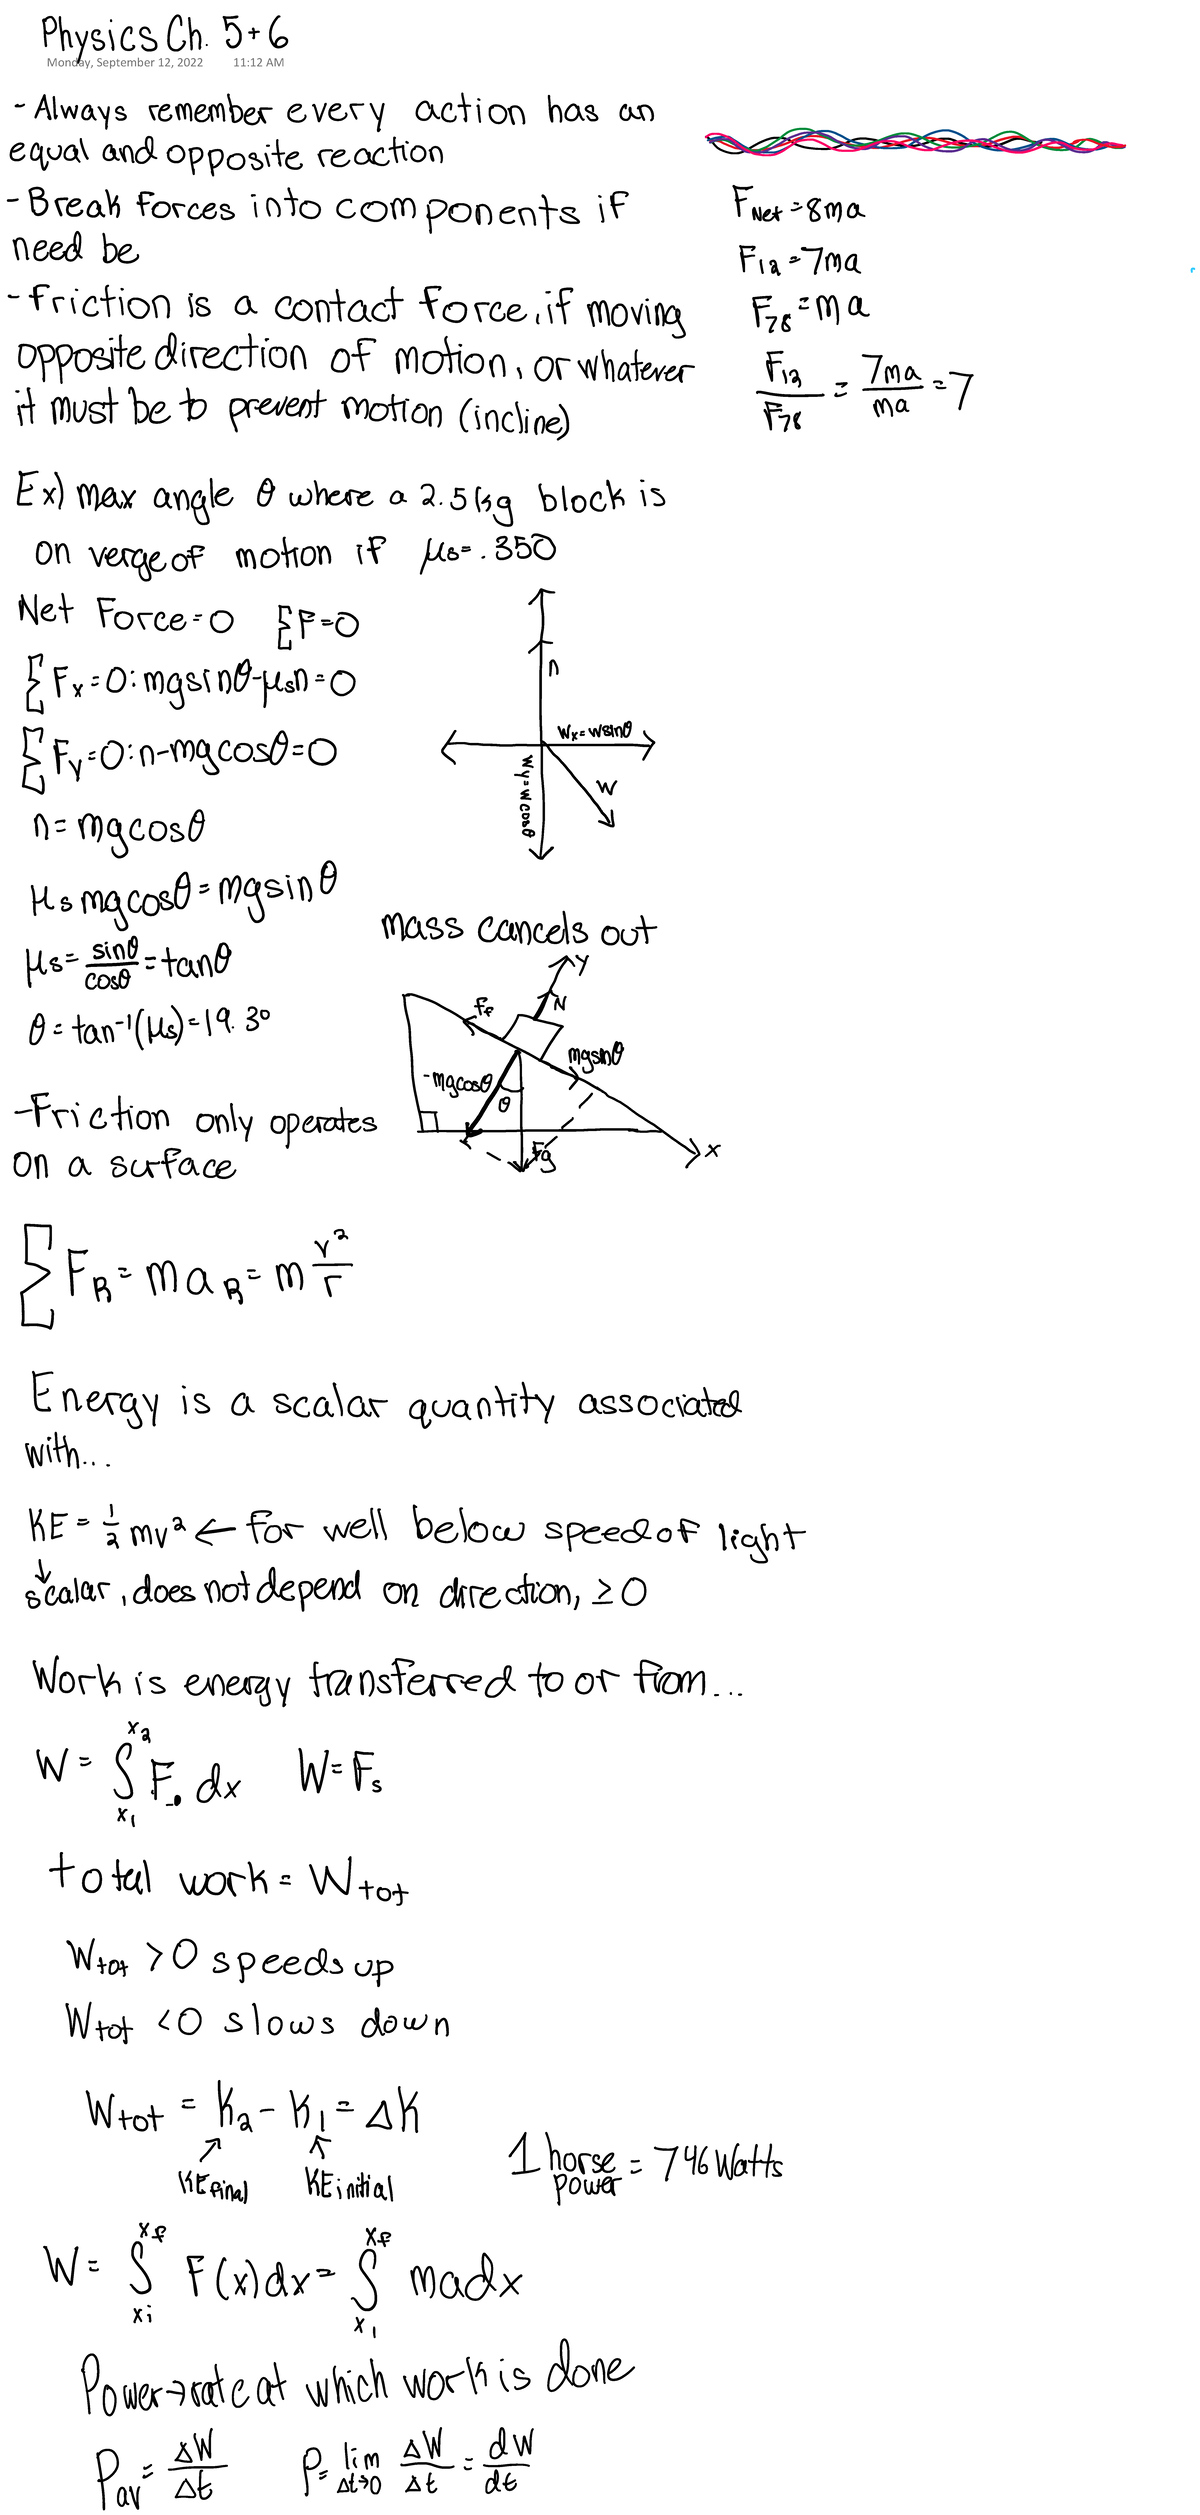 Physics Ch. 5+6
Monday, September 12, 2022 11:12 AM
- Always remember every action has an
equal and opposite reaction
- Break forces into components if
need be
- Friction is a contact force, if moving
opposite direction of motion, or whatever
it must be to prevent motion (incline)
F_Net = 8ma
F_12 = 7ma
F_78 = ma
F_12/F_78 = 7ma/ma = 7
Ex) max angle θ where a 2.5kg block is
on verge of motion if μs = .350
Net Force = 0 ΣF = 0
ΣFx = 0: mgsinθ - μsn = 0
ΣFy = 0: n - mgcosθ = 0
n = mgcosθ
μs mgcosθ = mgsinθ
μs = sinθ/cosθ = tanθ
θ = tan⁻¹(μs) = 19.3°
n
Wx = wsinθ
Wy = wcosθ
W
mass cancels out
y
N
Ff
mgsinθ
-mgcosθ
θ
Fg
x
- Friction only operates
on a surface
ΣF_R = ma_R = m v²/r
Energy is a scalar quantity associated
with...
KE = ½ mv² ← for well below speed of light
↓
scalar, does not depend on direction, ≥ 0
Work is energy transferred to or from...
W = ∫_x₁^x₂ F · dx W = Fs
total work = Wtot
Wtot > 0 speeds up
Wtot < 0 slows down
Wtot = K₂ - K₁ = ΔK
KEfinal KEinitial
1 horse power = 746 Watts
W = ∫_xi^xf F(x)dx = ∫_x₁^xf madx
Power → rate at which work is done
Pav = ΔW/Δt P = lim Δt→0 ΔW/Δt = dW/dt